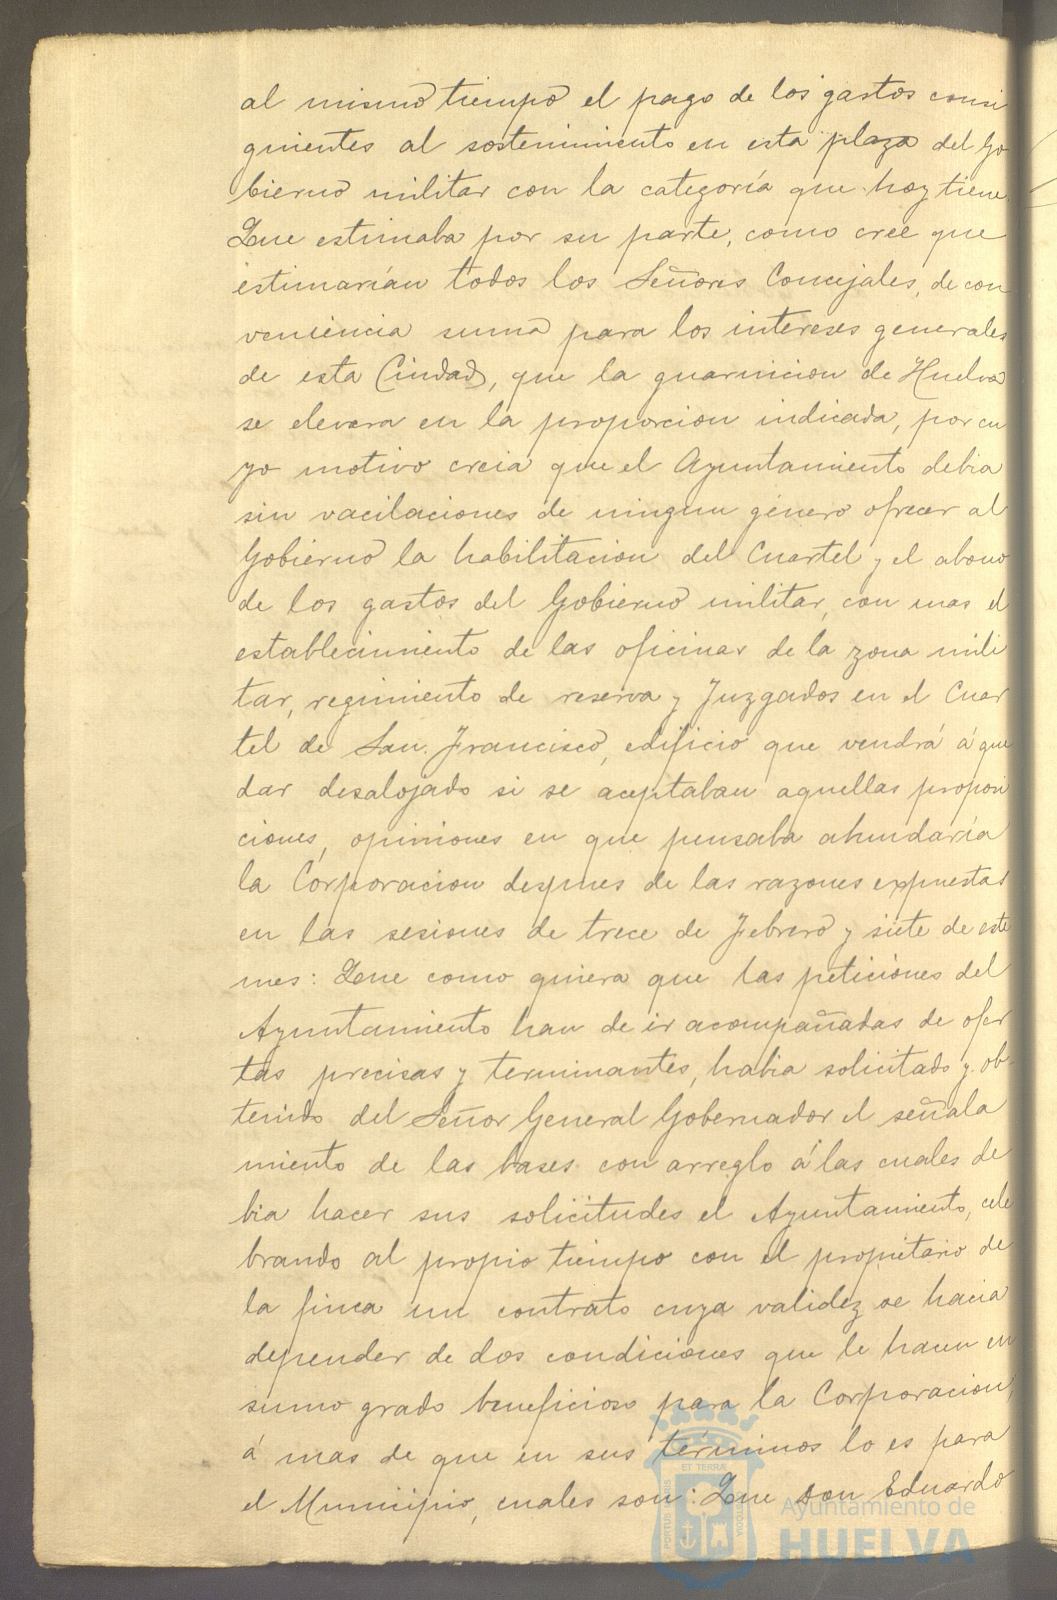 al mismo tiempo el pago de los gastos consi
guientes al sostenimiento en esta plaza del Go
bierno militar con la categoría que hoy tiene.
Que estimaba por su parte, como cree que
estimarían todos los Señores Concejales, de con
veniencia suma para los intereses generales
de esta Ciudad, que la guarnicion de Huelva
se elevara en la proporcion indicada, por cu
yo motivo creia que el Ayuntamiento debia
sin vacilaciones de ningun género ofrecer al
Gobierno la habilitacion del Cuartel y el abono
de los gastos del Gobierno militar, con mas el
establecimiento de las oficinas de la zona mili
tar, regimiento de reserva y Juzgados en el Cuar
tel de San Francisco, edificio que vendrá á que
dar desalojado si se aceptaban aquellas proposi
ciones, opiniones en que pensaba abundaría
la Corporacion despues de las razones expuestas
en las sesiones de trece de Febrero y siete de este
mes: Que como quiera que las peticiones del
Ayuntamiento han de ir acompañadas de ofer
tas precisas y terminantes, habia solicitado y ob
tenido del Señor General Gobernador el señala
miento de las bases con arreglo á las cuales de
bia hacer sus solicitudes el Ayuntamiento, cele
brando al propio tiempo con el propietario de
la finca un contrato cuya validez se hacia
depender de dos condiciones que le hacen en
sumo grado beneficioso para la Corporacion,
á mas de que en sus términos lo es para
el Municipio, cuales son: Que Don Eduardo
ET TERRÆ
PORTUS MARIS
CUSTODIA
Ayuntamiento de
HUELVA